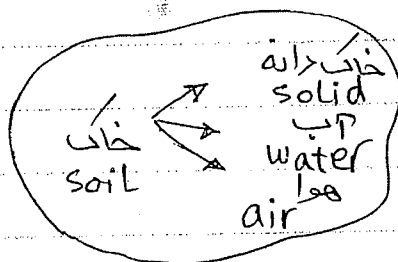 خاک
soil
خاک دانه
solid
آب
water
هوا
air